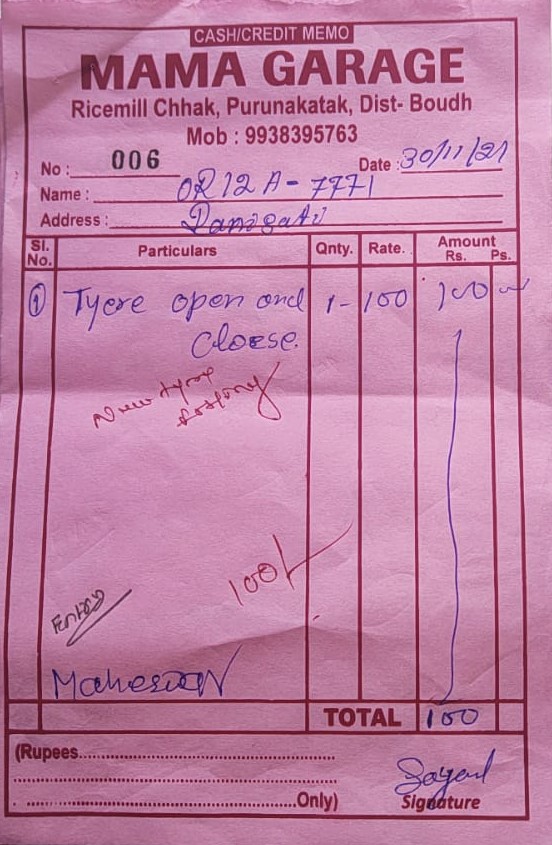 CASH/CREDIT MEMO
MAMA GARAGE
Ricemill Chhak, Purunakatak, Dist- Boudh
Mob : 9938395763
No : 006 Date : 30/11/21
Name : OR12A-7771
Address :
Sl. No. Particulars Qnty. Rate. Amount Rs. Ps.
① Tyere open and 1- 100 100
Cloese.
New tyre
100/-
Entry
TOTAL 100
(Rupees
Only)
Signature